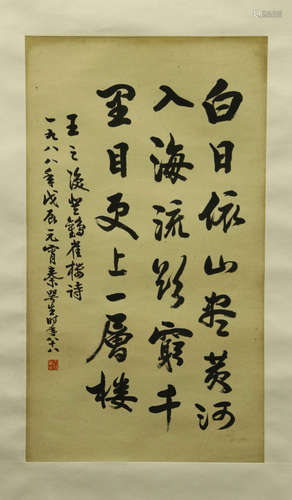 白日依山尽黄河
入海流欲窮千
里目更上一層楼
王之渙登鸛雀楼诗
一九八八年戊辰元宵秦咢生时年八十八